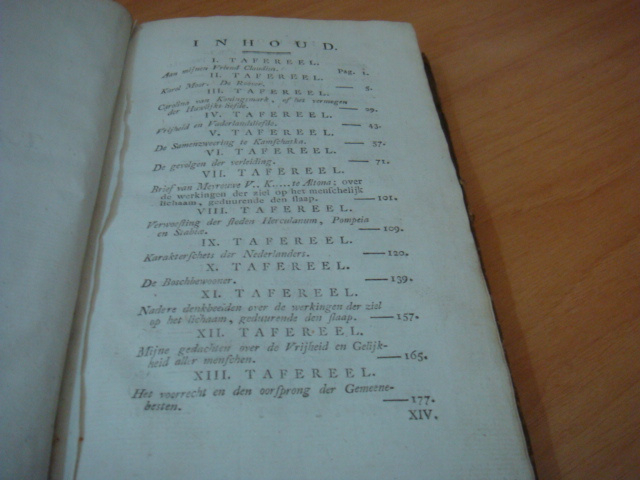 INHOUD.
I. TAFEREEL.
Aan mijnen Vriend Claudius. Pag. 1.
II. TAFEREEL.
Karel Moor. De Roover. — 5.
III. TAFEREEL.
Carolina van Koningsmark, of het vermogen
der Huwlijks liefde. — 29.
IV. TAFEREEL.
Vrijheid en Vaderlandliefde. — 43.
V. TAFEREEL.
De Samenzweering te Kamschatka. — 57.
VI. TAFEREEL.
De gevolgen der verleiding. — 71.
VII. TAFEREEL.
Brief van Mevrouwe V.. K..... te Altona; over
de werkingen der ziel op het menschelijk
lichaam, geduurende den slaap. — 101.
VIII. TAFEREEL.
Verwoesting der steden Herculanum, Pompeia
en Stabiæ. — 109.
IX. TAFEREEL.
Karakterschets der Nederlanders. — 120.
X. TAFEREEL.
De Boschbewooner. — 139.
XI. TAFEREEL.
Nadere denkbeelden over de werkingen der ziel
op het lichaam, geduurende den slaap. — 157.
XII. TAFEREEL.
Mijne gedachten over de Vrijheid en Gelijk-
heid aller menschen. — 165.
XIII. TAFEREEL.
Het voorrecht en den oorsprong der Gemeene-
besten. — 177.
XIV.